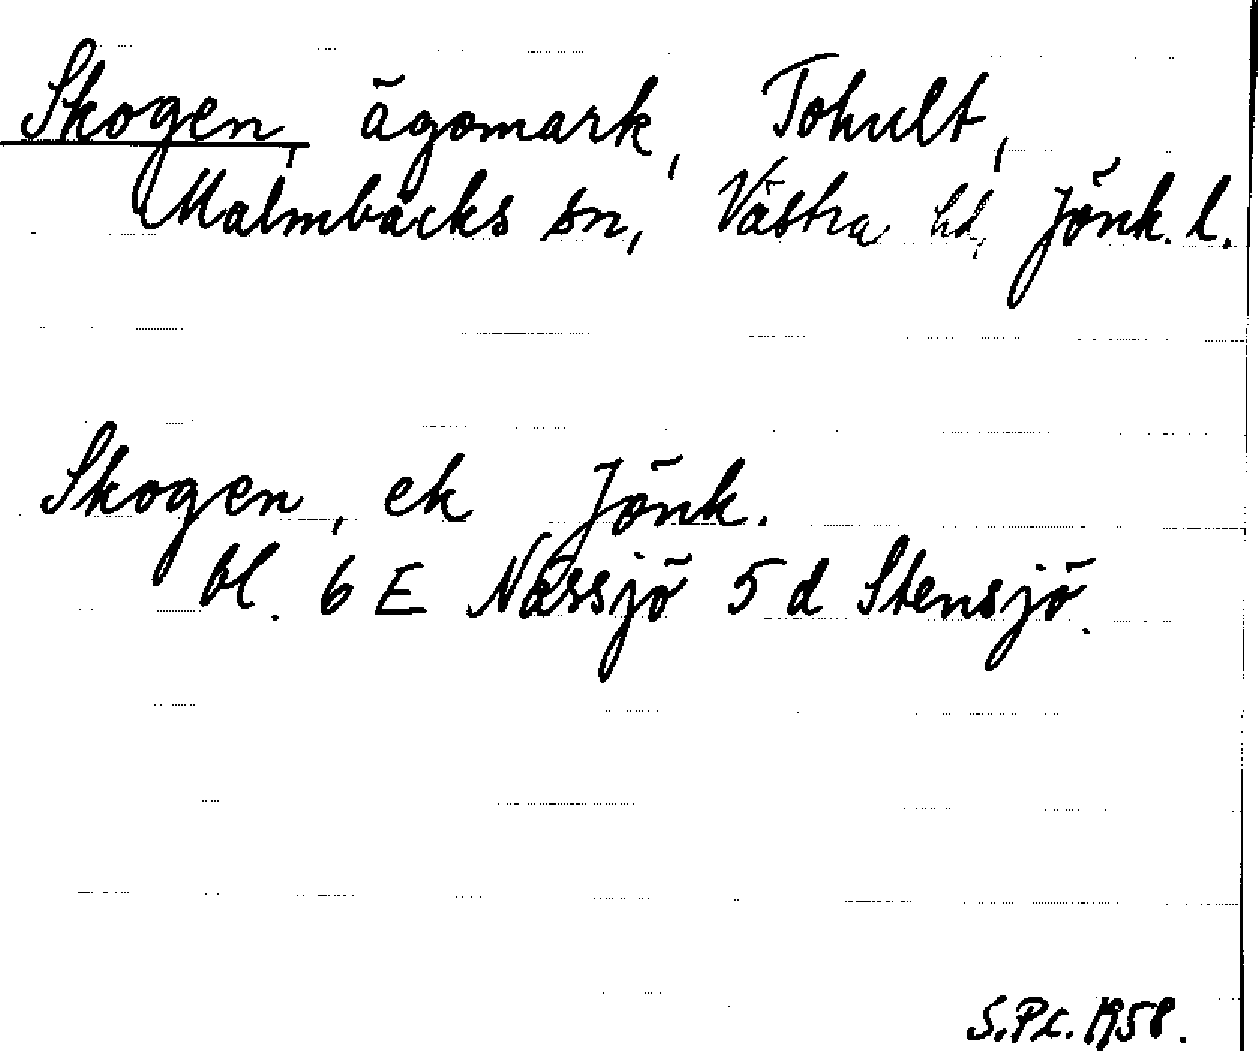 Skogen, ägomark, Tohult,
Malmbäcks sn, Västra hd, Jönk. l.
Skogen, ek Jönk.
bl. 6 E Nässjö 5 d Stensjö.
S.Pl. 1958.